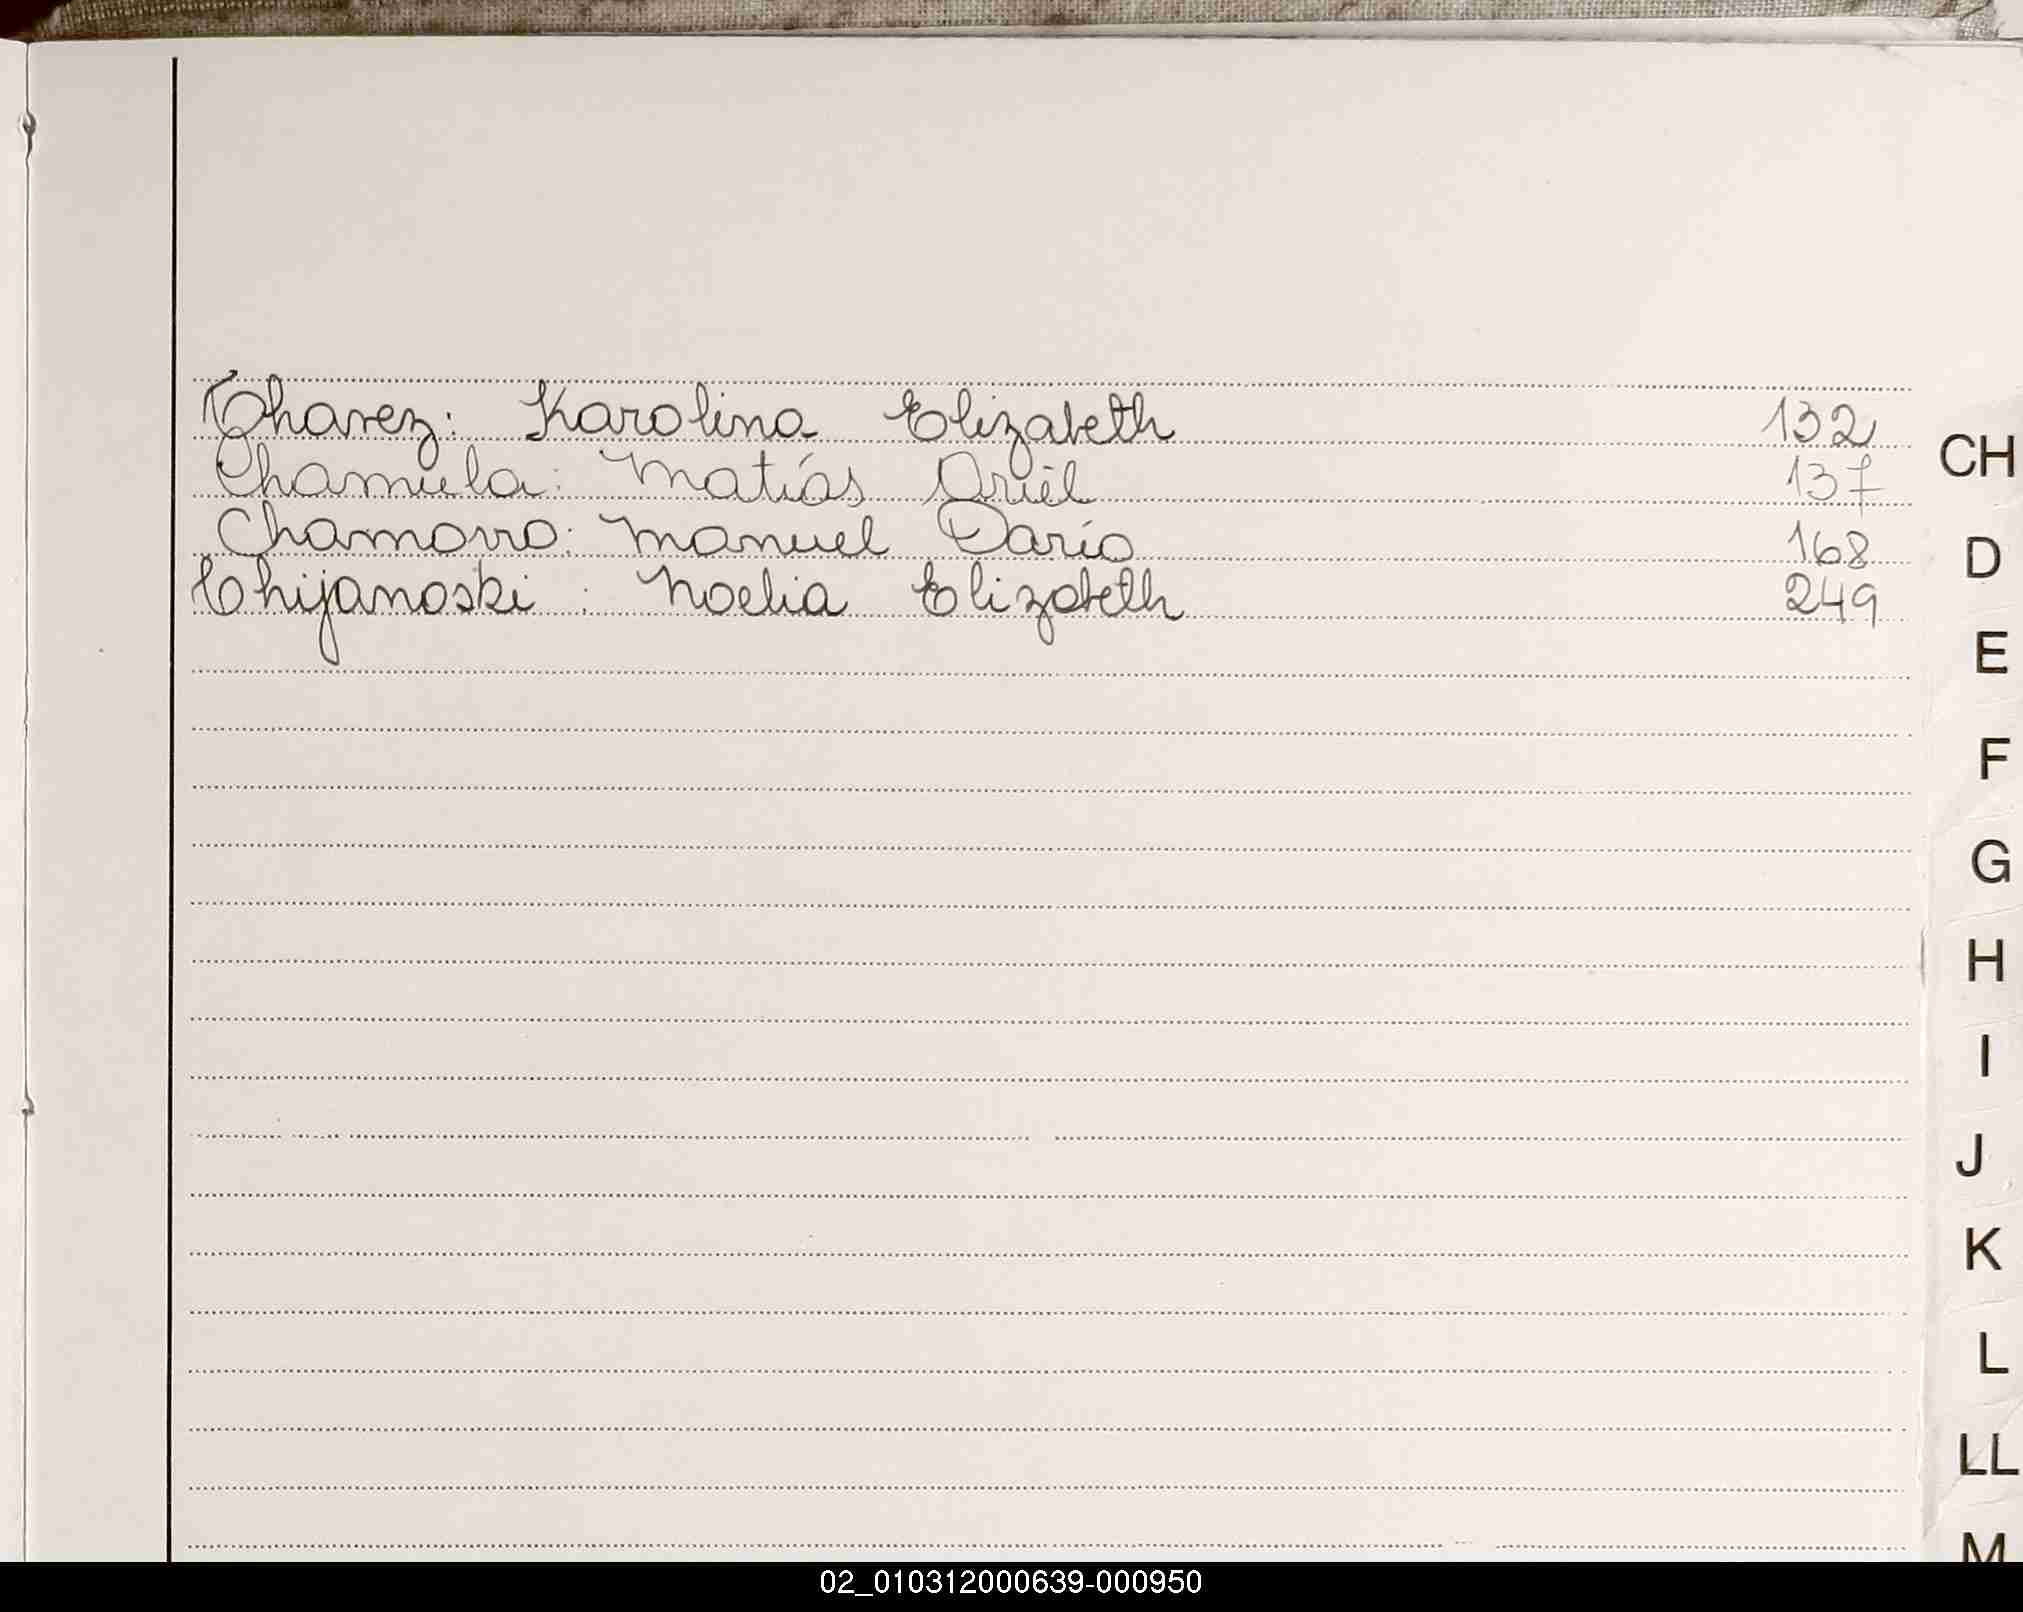 Chavez: Karolina Elizabeth 132
Chamula: Matías Ariel 137
Chamorro: Manuel Darío 168
Chijanoski: Noelia Elizabeth 249
CH
D
E
F
G
H
I
J
K
L
LL
M
02_010312000639-000950